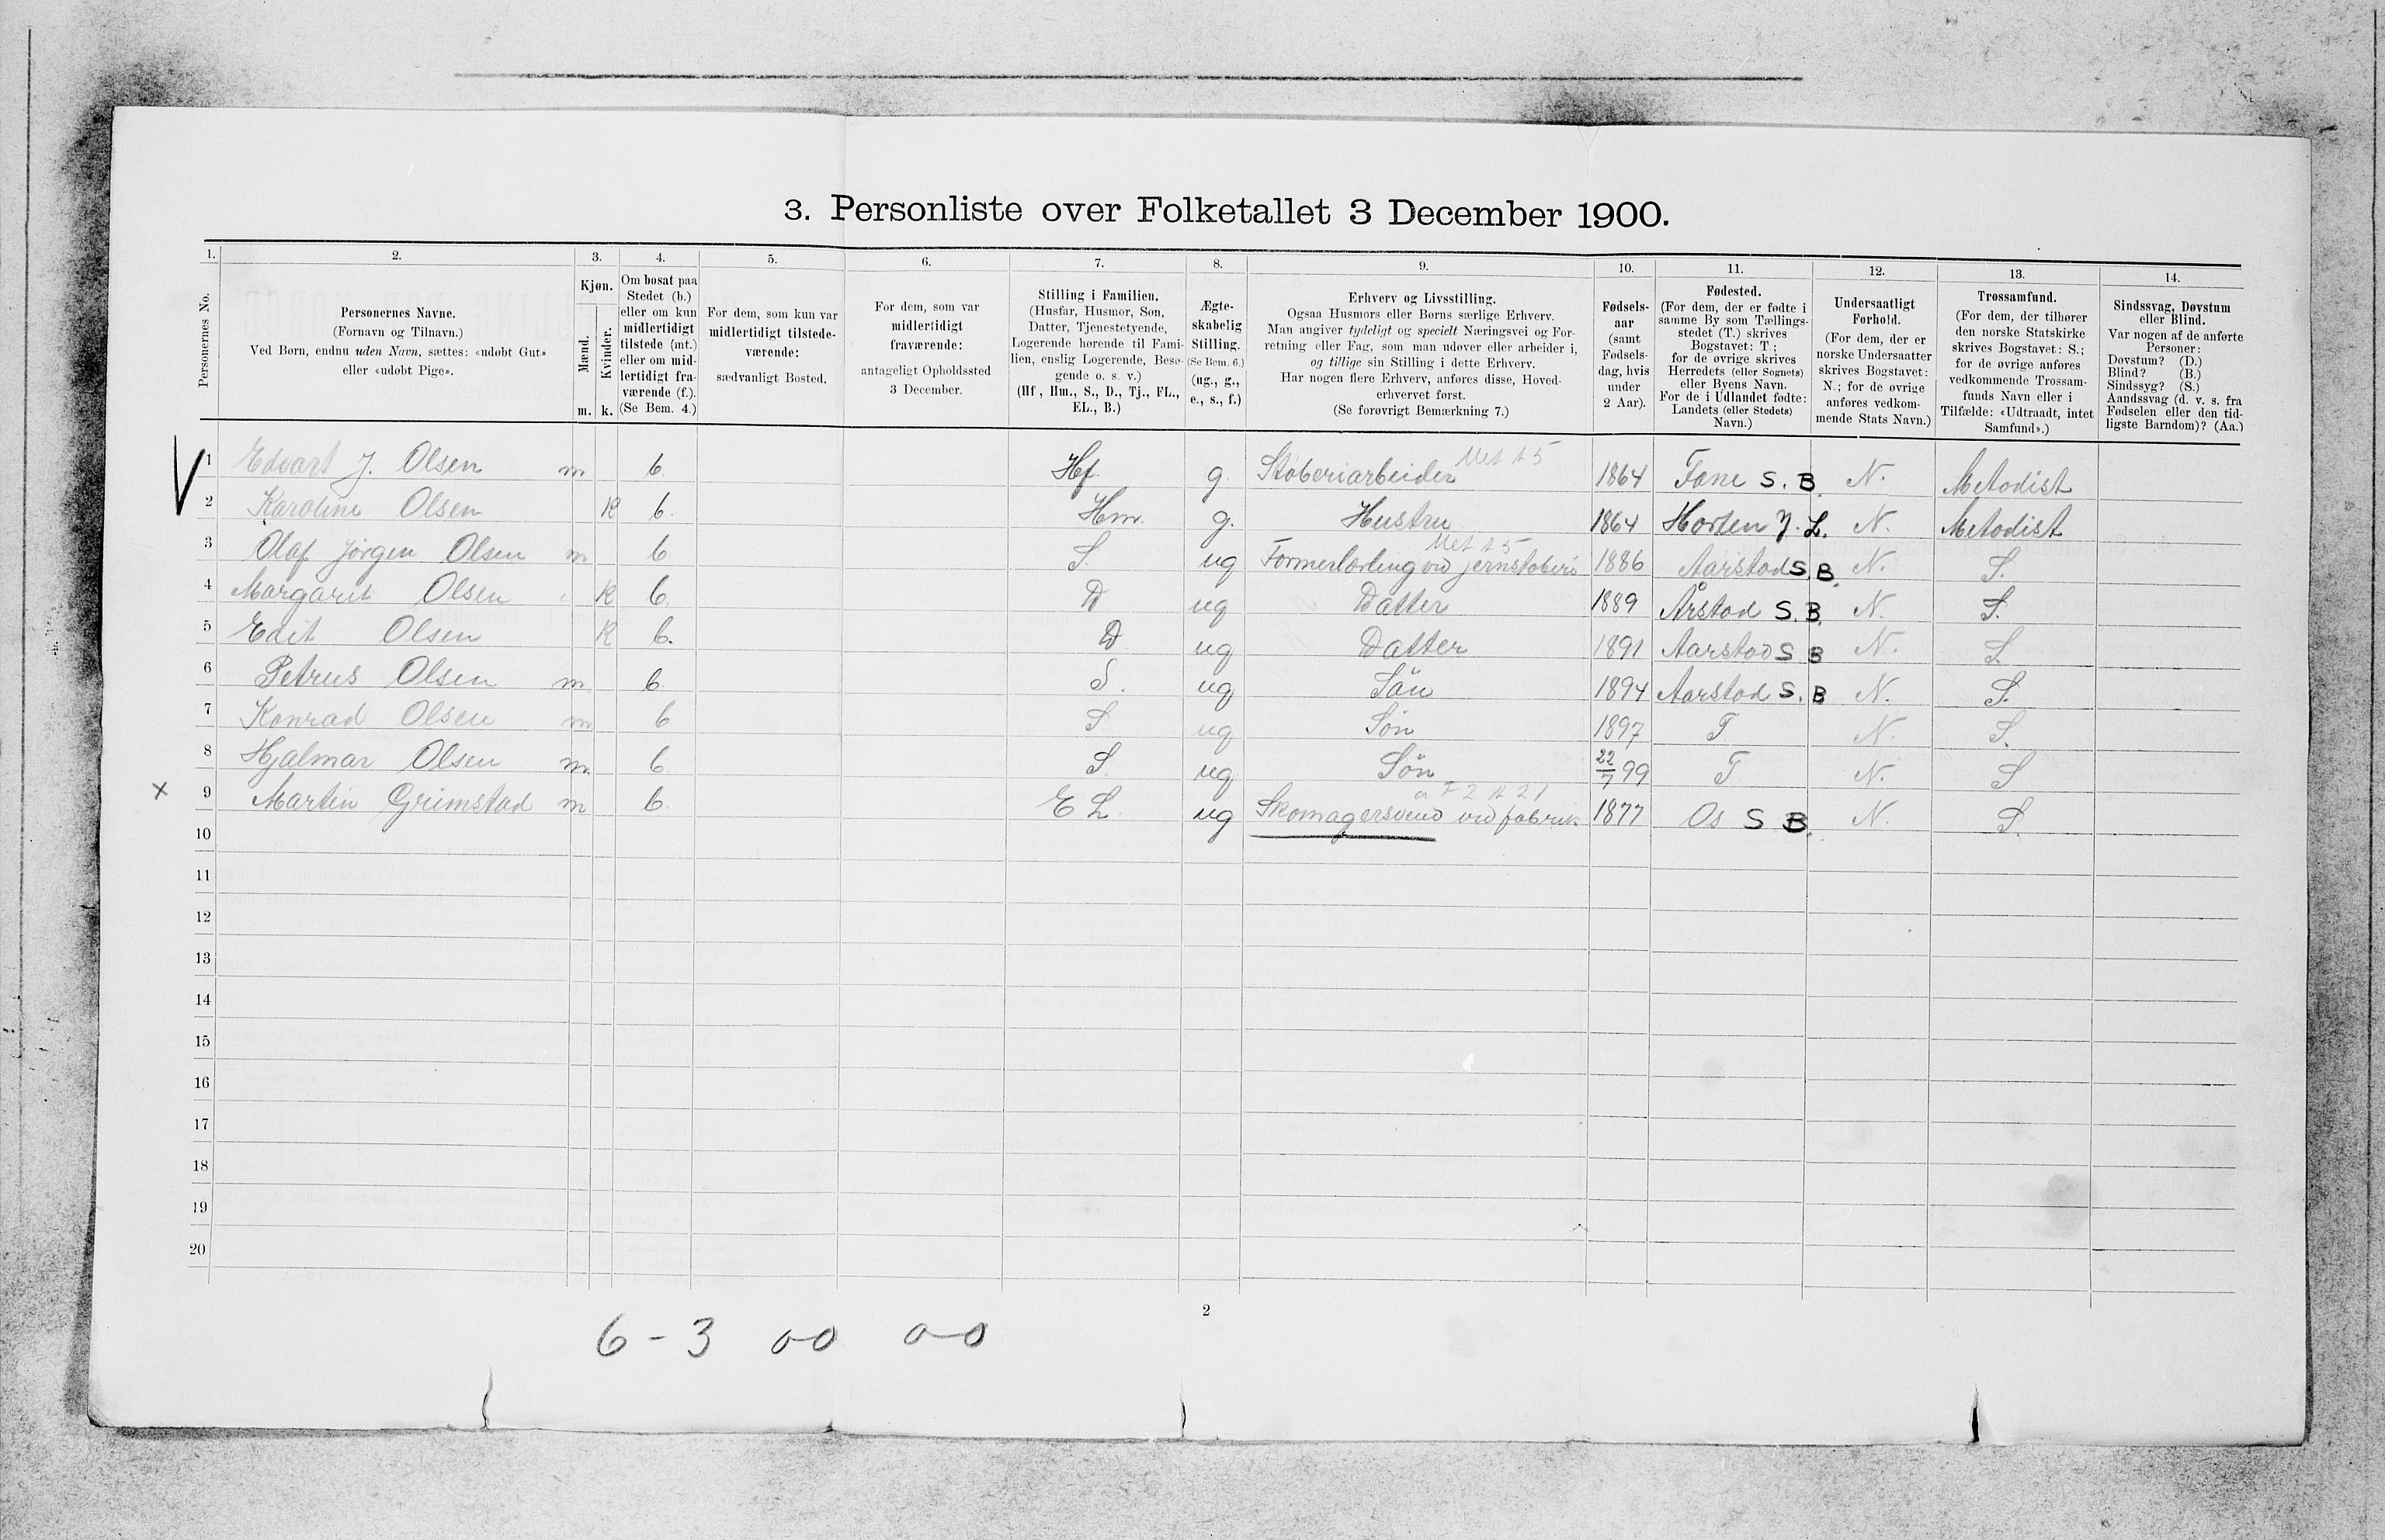 3. Personliste over Folketallet 3 December 1900.
1. 2. 3. 4. 5. 6. 7. 8. 9. 10. 11. 12. 13. 14.
Personernes No.
Personernes Navne.
(Fornavn og Tilnavn.)
Ved Børn, endnu uden Navn, sættes: «udøbt Gut»
eller «udøbt Pige».
Kjøn.
Mænd.
Kvinder.
m. k.
Om bosat paa
Stedet (b.)
eller om kun
midlertidigt
tilstede (mt.)
eller om mid-
lertidigt fra-
værende (f.).
(Se Bem. 4.)
For dem, som kun var
midlertidigt tilstede-
værende:
sædvanligt Bosted.
For dem, som var
midlertidigt
fraværende:
antageligt Opholdssted
3 December.
Stilling i Familien.
(Husfar, Husmor, Søn,
Datter, Tjenestetyende,
Logerende hørende til Fami-
lien, enslig Logerende, Besø-
gende o. s. v.)
(Hf, Hm., S., D., Tj., FL.,
EL., B.)
Ægte-
skabelig
Stilling.
(Se Bem. 6.)
(ug., g.,
e., s., f.)
Erhverv og Livsstilling.
Ogsaa Husmors eller Børns særlige Erhverv.
Man angiver tydeligt og specielt Næringsvei og For-
retning eller Fag, som man udøver eller arbeider i,
og tillige sin Stilling i dette Erhverv.
Har nogen flere Erhverv, anføres disse, Hoved-
erhvervet først.
(Se forøvrigt Bemærkning 7.)
Fødsels-
aar
(samt
Fødsels-
dag, hvis
under
2 Aar).
Fødested.
(For dem, der er fødte i
samme By som Tællings-
stedet (T.) skrives
Bogstavet: T.;
for de øvrige skrives
Herredets (eller Sognets)
eller Byens Navn.
For de i Udlandet fødte:
Landets (eller Stedets)
Navn.)
Undersaatligt
Forhold.
(For dem, der er
norske Undersaatter
skrives Bogstavet:
N.; for de øvrige
anføres vedkom-
mende Stats Navn.)
Trossamfund.
(For dem, der tilhører
den norske Statskirke
skrives Bogstavet: S.;
for de øvrige anføres
vedkommende Trossam-
funds Navn eller i
Tilfælde: «Udtraadt, intet
Samfund».)
Sindssvag, Døvstum
eller Blind.
Var nogen af de anførte
Personer:
Døvstum? (D.)
Blind? (B.)
Sindssyg? (S.)
Aandssvag (d. v. s. fra
Fødselen eller den tid-
ligste Barndom)? (Aa.)
Met A5
1 Edvart J. Olsen m b. Hf. g. Støberiarbeider 1864 Fane S. B. N. Metodist
2 Karoline Olsen K b. Hm. g. Hustru 1864 Horten J. L. N. Metodist
Met A5
3 Olaf Jørgen Olsen m b S. ug Formerlærling ved jernstøberi 1886 Aarstad S. B. N. S.
4 Margarit Olsen K b. D ug Datter 1889 Årstad S. B. N. S.
5 Edit Olsen K b. D ug Datter 1891 Aarstad S B N. S
6 Petrus Olsen m b. S. ug Sön 1894 Aarstad S. B N. S.
7 Konrad Olsen m b S ug Søn 1897 T N. S.
8 Hjalmar Olsen m. b S. ug Sön 22/7 99 T N. S
9 Martin Grimstad m b. E L. ug Skomagersvend ved fabrik 1877 Os S B. N. S.
10
11
12
13
14
15
16
17
18
19
20
2
6 - 3 0-0 0-0